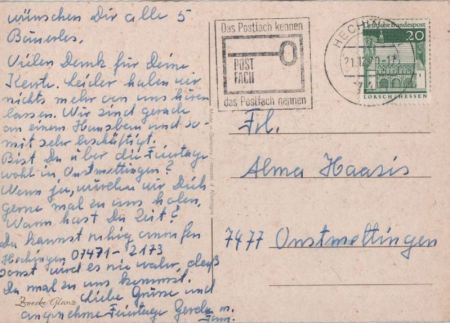 wünschen Dir alle 5
Bäuerles.
Vielen Dank für Deine
Karte. Leider haben wir
nichts mehr von uns hören
lassen. Wir sind gerade
an einem Hausbau und so-
mit sehr beschäftigt.
Bist Du über die Feiertage
wohl in Onstmettingen?
Wenn ja, würden wir Dich
gerne mal zu uns holen.
Wann hast Du Zeit?
Du kannst ruhig anrufen
Hechingen 07471-2173
sonst wird es nie wahr, daß
Du mal zu uns kommst.
Liebe Grüße und
angenehme Feiertage Gerda m.
Fam.
Das Postfach kennen
POST
FACH
das Postfach nennen
HECHINGEN
Deutsche Bundespost
20
LORSCH/HESSEN
Frl.
Alma Haasis
7477 Onstmettingen